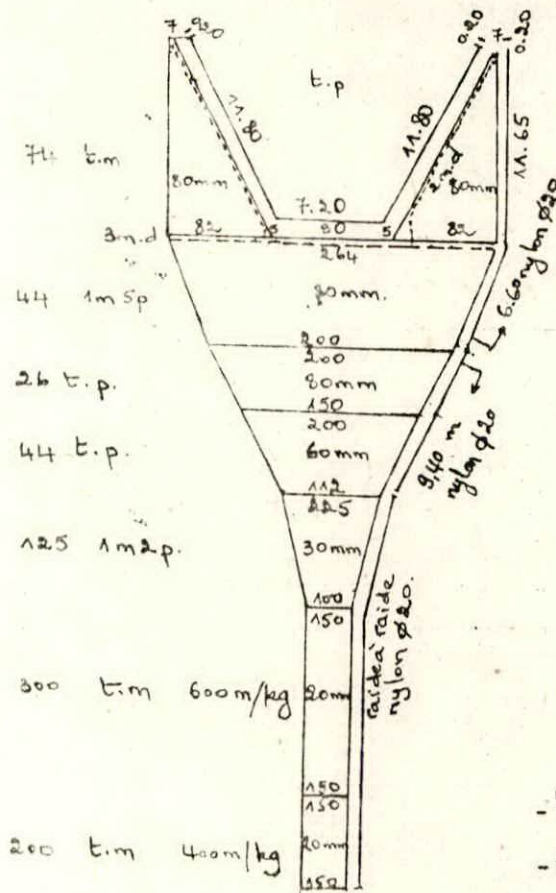 7 , 20 0.20 7 0.20
t.p
11.80 11.80 11.65
74 t.m 80mm 2 m.d 80mm
7.20
82 5 90 5 82
3 m.d 264
44 1m 5p 80mm.
6.60 nylon ø20
200
200
26 t.p. 80mm
150
200
44 t.p. 60mm
9,40 m
nylon ø20
112
225
125 1m2p. 30mm
100
150
raide à raide
nylon ø20.
300 t.m 600m/kg 20mm
150
150
200 t.m 400m/kg 20mm
150